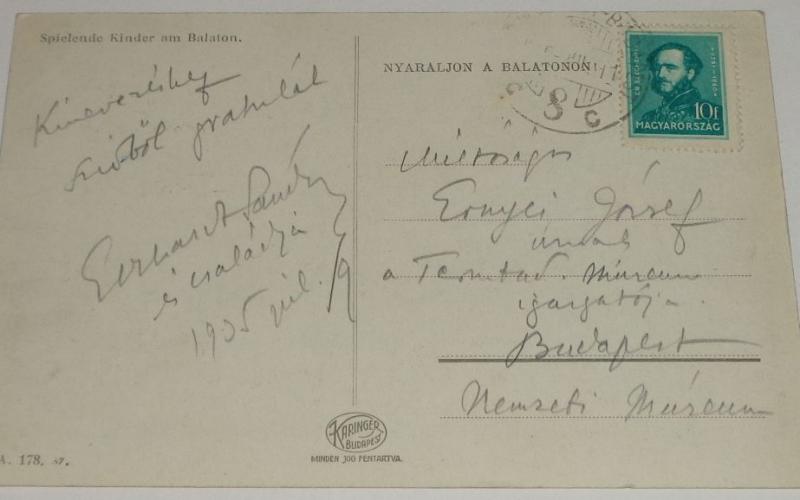 Spielende Kinder am Balaton.
Kinevezéshez
szívből gratulál
Gerhardt Sándor
és családja
1935 júl. 19
NYARALJON A BALATONON!
10f
MAGYARORSZÁG
Méltóságos
Ernyei József
úrnak
a Termtud. Múzeum
igazgatója.
Budapest
Nemzeti Múzeum
KARINGER
BUDAPEST
MINDEN JOG FENTARTVA.
A. 178. 37.